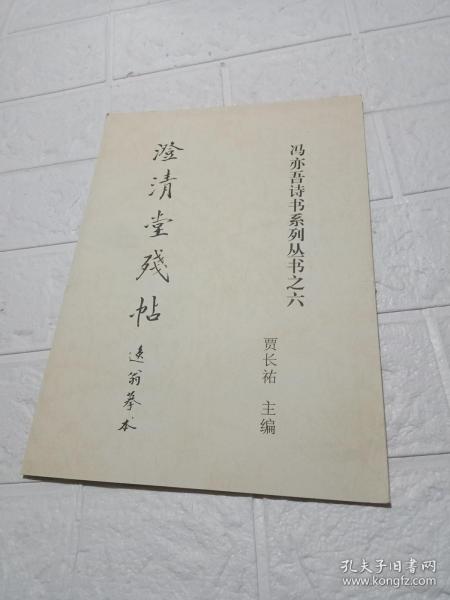 冯亦吾诗书系列丛书之六
贾长祐 主编
澄清堂残帖
迷翁摹本
孔夫子旧书网
www.kongfz.com